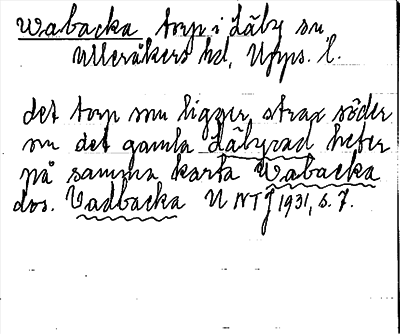 Wabacka torp i Läby sn
Ulleråkers hd, Upps. l.
det torp som ligger strax söder
om det gamla Läbyvad heter
på samma karta Wabacka
dvs. Vadbacka UNTJ 1931, s. 7.